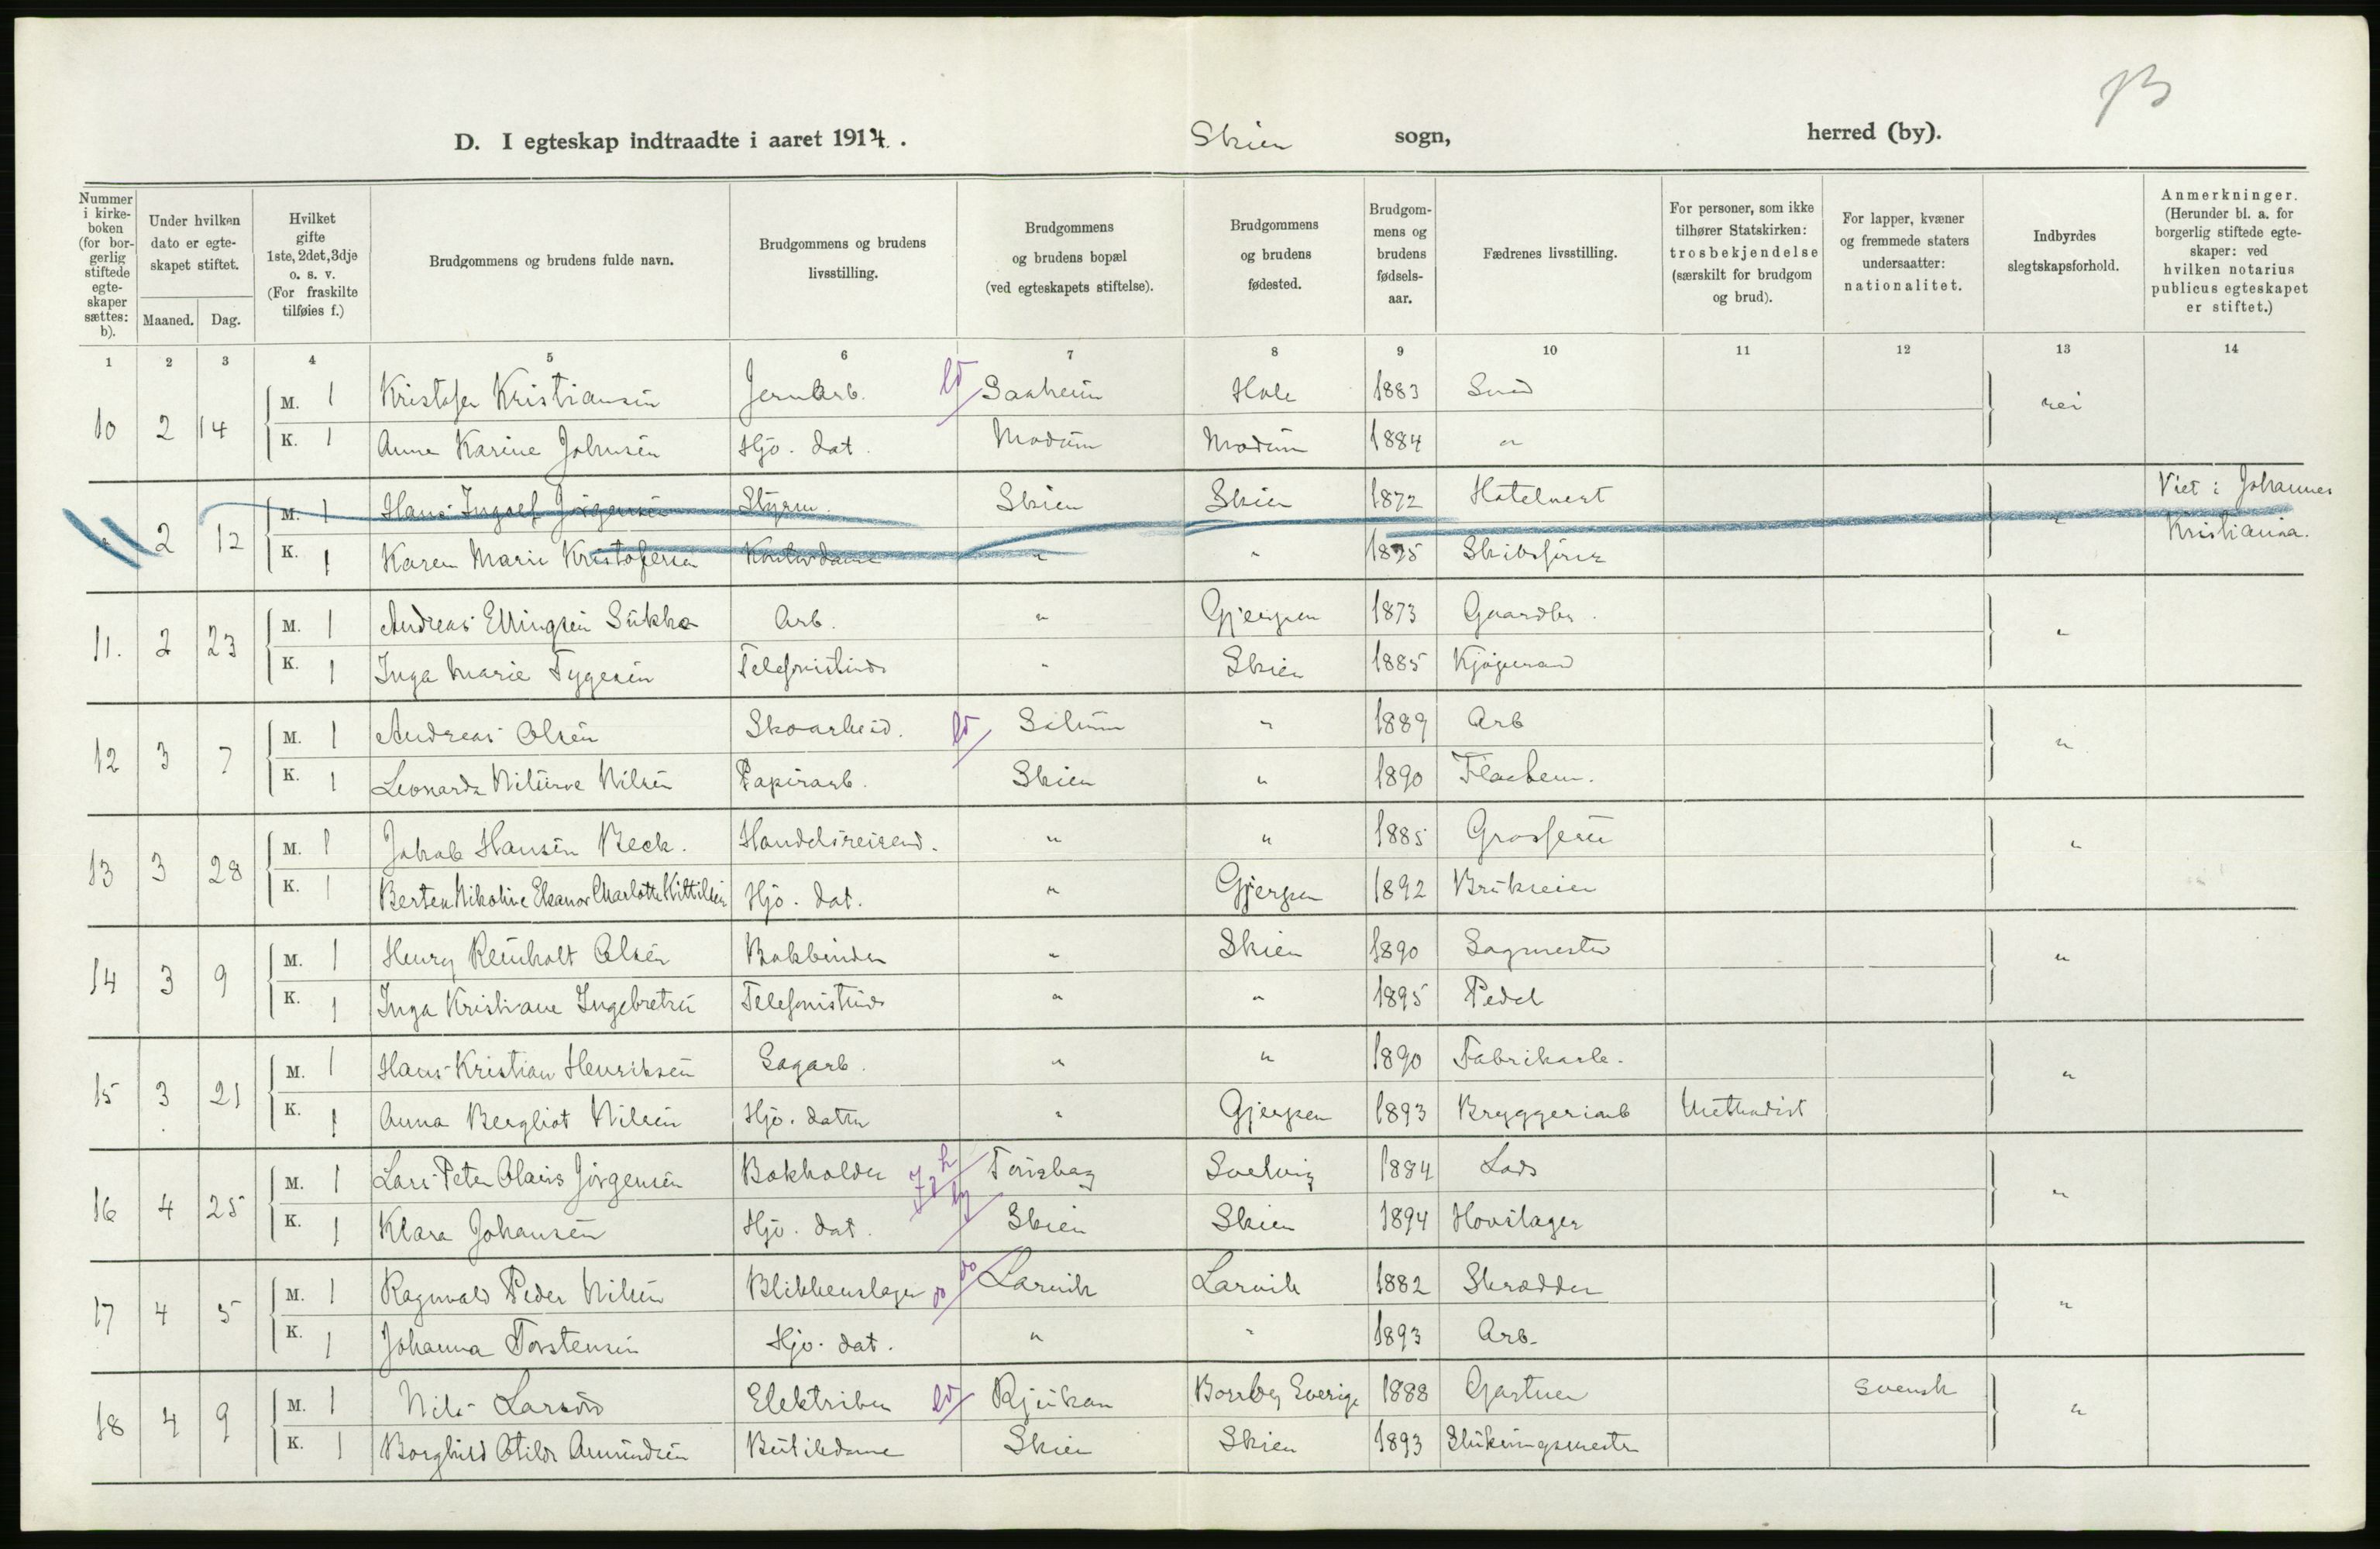 73
D. I egteskap indtraadte i aaret 1914. Skien sogn, herred (by).
Nummer i kirkeboken (for borgerlig stiftede egteskaper sættes: b).
Under hvilken dato er egteskapet stiftet.
Maaned. Dag.
Hvilket gifte 1ste, 2det, 3dje o. s. v. (For fraskilte tilføies f.)
Brudgommens og brudens fulde navn.
Brudgommens og brudens livsstilling.
Brudgommens og brudens bopæl (ved egteskapets stiftelse).
Brudgommens og brudens fødested.
Brudgommens og brudens fødselsaar.
Fædrenes livsstilling.
For personer, som ikke tilhører Statskirken: trosbekjendelse (særskilt for brudgom og brud).
For lapper, kvæner og fremmede staters undersaatter: nationalitet.
Indbyrdes slegtskapsforhold.
Anmerkninger. (Herunder bl. a. for borgerlig stiftede egteskaper: ved hvilken notarius publicus egteskapet er stiftet.)
1 2 3 4 5 6 7 8 9 10 11 12 13 14
10 2 14 M. 1 Kristofer Kristiansen Jernarb. Saaheim Hole 1883 Smed nei
K. 1 Anne Karine Johnsen Hjo. dat. Modum Modum 1884 "
2 12 M. 1 Hans Ingolf Jörgensen Styrm. Skien Skien 1872 Hotelvert " Viet i Johannes
K. 1 Karen Marie Kristofersen Kontordame " " 1875 Skibsförer Kristiania.
11. 2 23 M. 1 Andreas Ellingsen Arb. " Gjerpen 1873 Gaardbr. "
K. 1 Inga Marie Tygesen Telefonistinde " Skien 1885 Kjöpmand
12 3 7 M. 1 Andreas Olsen Skoarbeid. Solum " 1889 Arb "
K. 1 Leonarda Nilsen Papirarb. Skien " 1890
13 3 28 M. 1 Jakob Hansen Beck. Handelsreisend. " " 1885 Grosserer "
K. 1 Nikoline Eleanor Charlotte Kittilsen Hjo. dat. " Gjerpen 1892 Brukseier
14 3 9 M. 1 Henry Reinholt Olsen Bokbinder " Skien 1890 Sagmester "
K. 1 Inga Kristiane Ingebretsen Telefonistinde " " 1895 Pedel
15 3 21 M. 1 Hans Kristian Henriksen Sagarb. " " 1890 Fabrikarb. "
K. 1 Anna Bergliot Nilsen Hjo. datter " Gjerpen 1893 Bryggeriarb Methodist
16 4 25 M. 1 Lars Peter Olaus Jörgensen Bokholder Svelvig 1884 Lods "
K. 1 Klara Johansen Hjo. dat. Skien Skien 1894 Hovslager
17 4 5 M. 1 Ragnvald Peder Nilsen Blikkenslager Larvik Larvik 1882 Skrædder "
K. 1 Johanna Torstensen Hjo. dat. " " 1893 Arb.
18 4 9 M. 1 Nils Larsson Elektriker Rjukan Borrby Sverige 1888 Gartner svensk "
K. 1 Borghild Otilde Amundsen Butikdame Skien Skien 1893